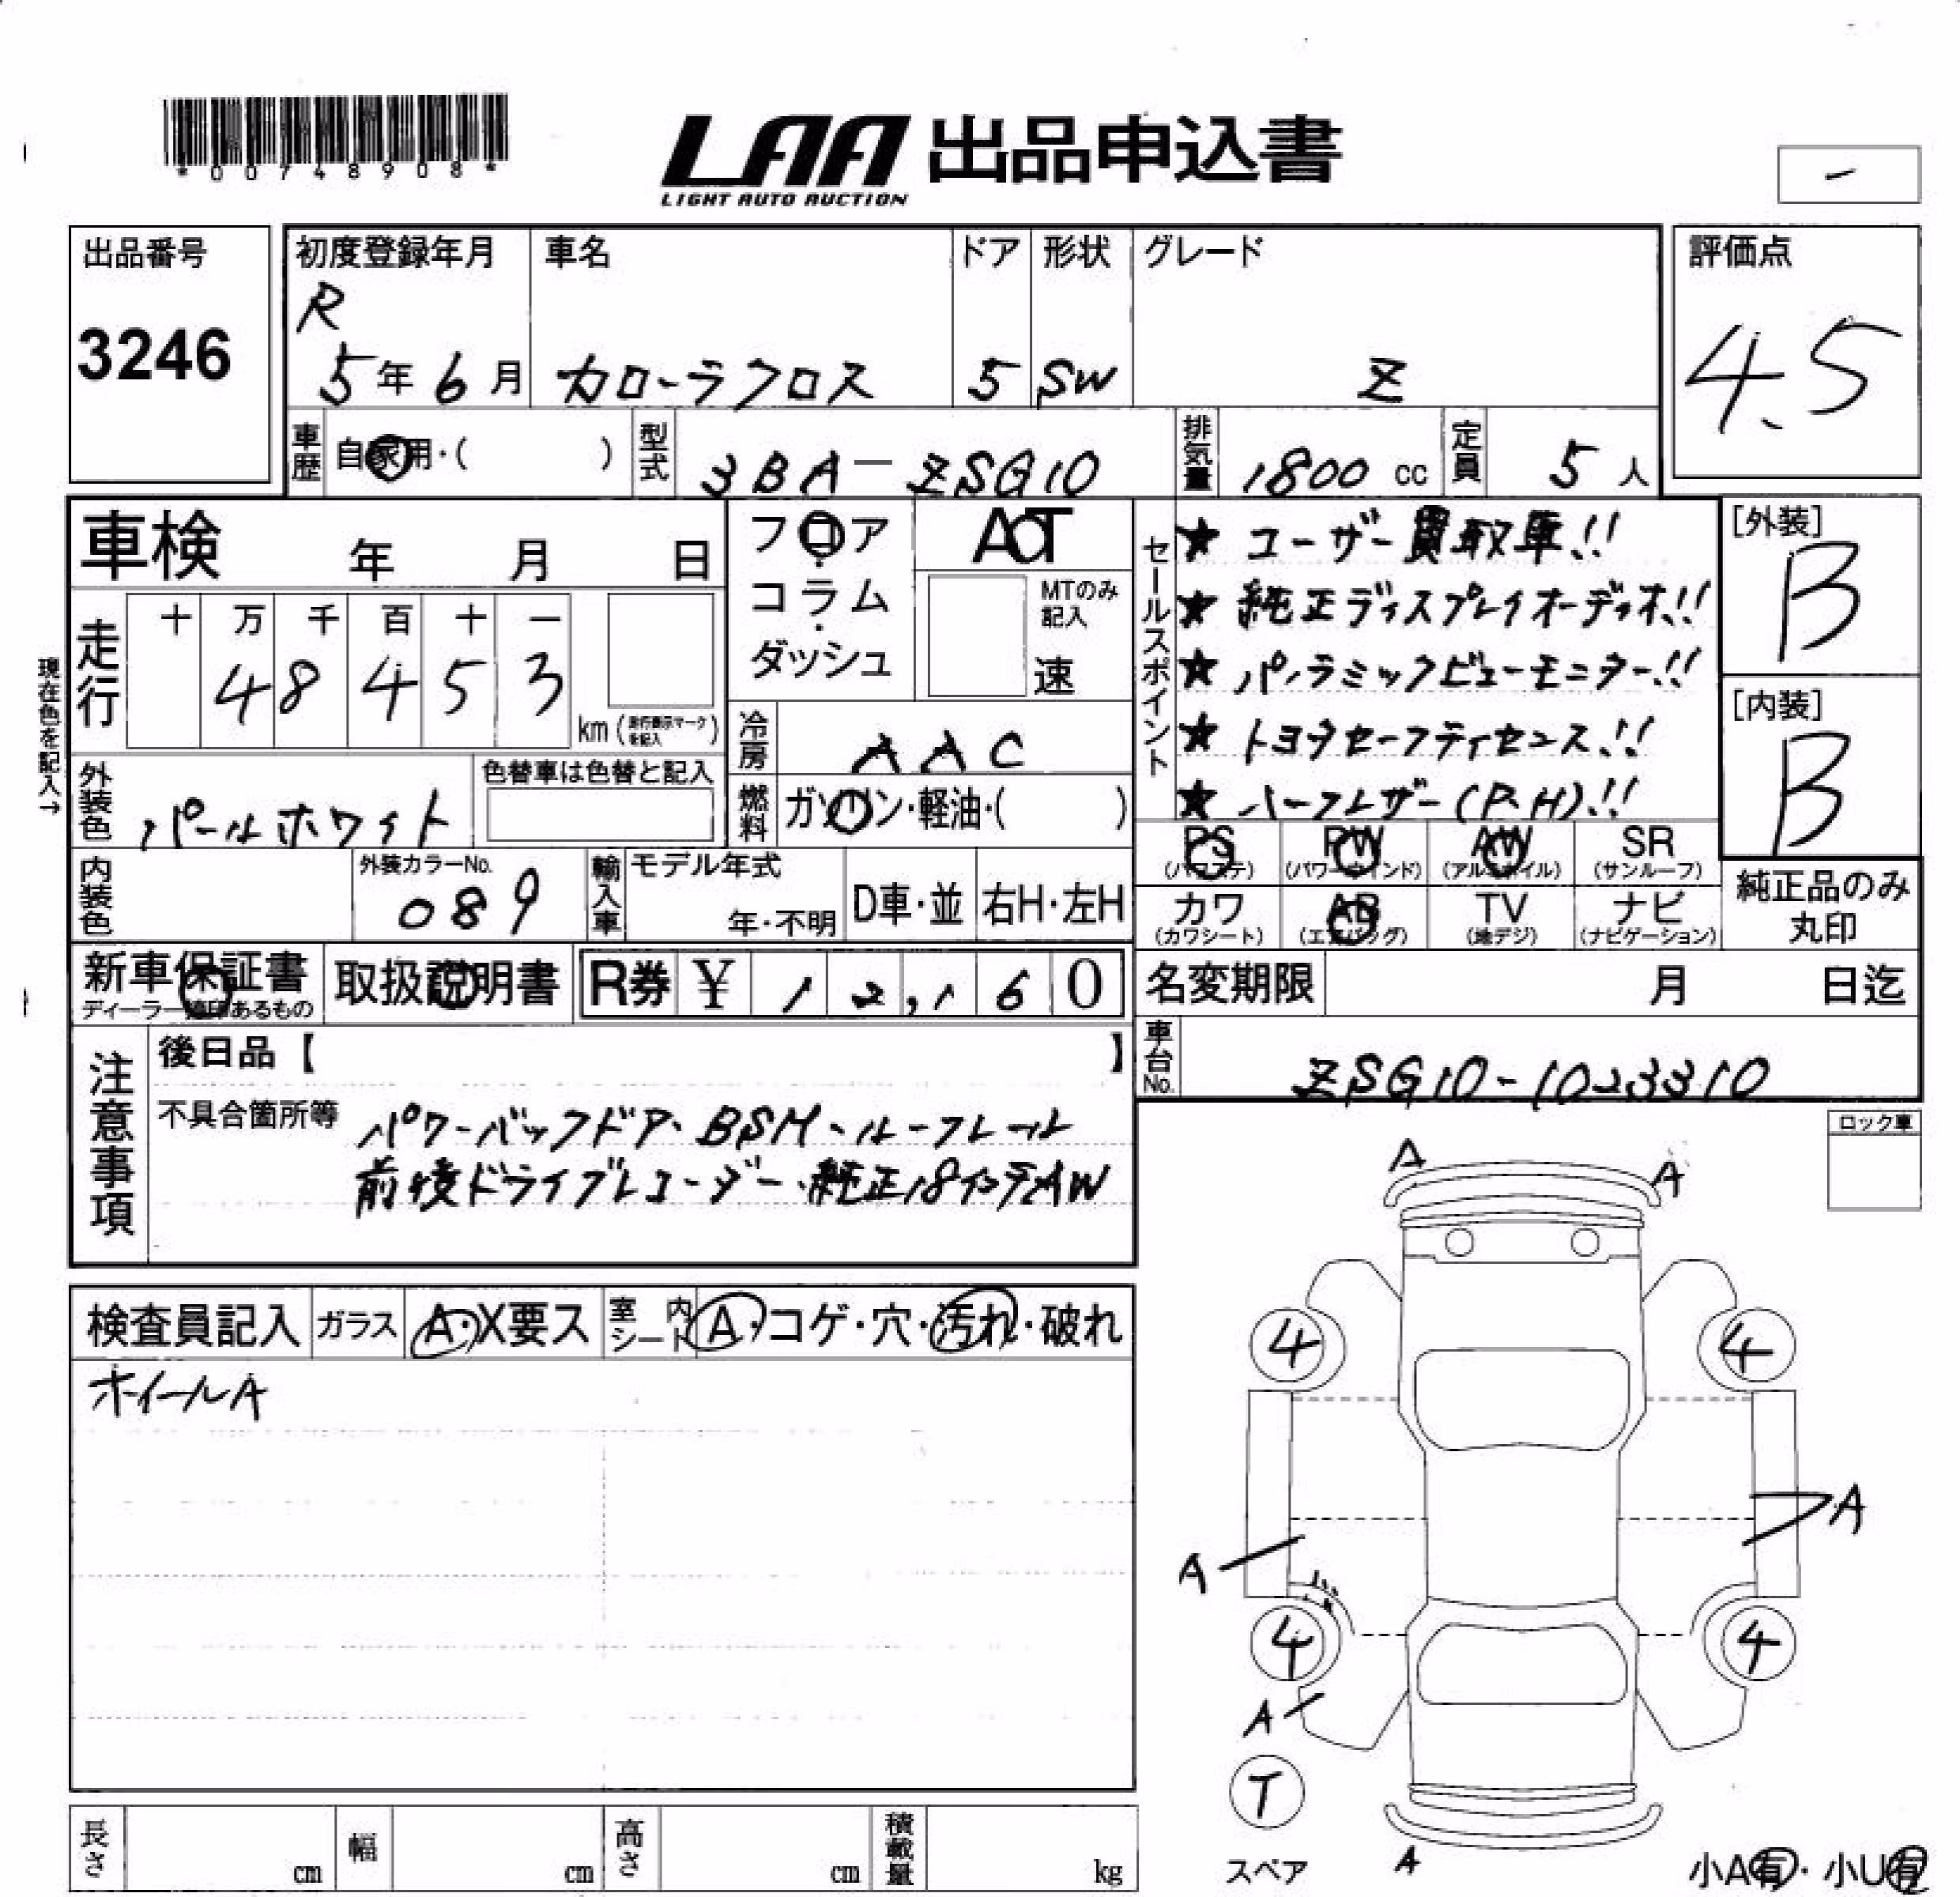 *00748908*
LAA 出品申込書
LIGHT AUTO AUCTION
ー
出品番号
3246
初度登録年月
R
5年6月
車名
カローラクロス
ドア
5
形状
SW
グレード
Z
評価点
4.5
車歴
自家用・( )
型式
3BA-ZSG10
排気量
1800 cc
定員
5人
車検 年 月 日
走行
十 万 千 百 十 一
4 8 4 5 3
km(走行表示マークを記入)
現在色を記入→
外装色
パールホワイト
色替車は色替と記入
内装色
外装カラーNo.
089
輸入車
モデル年式
年・不明
D車・並
右H・左H
フロア
・
コラム
・
ダッシュ
AT
MTのみ
記入
速
冷房
AAC
燃料
ガソリン・軽油・( )
セールスポイント
★ ユーザー買取車!!
★ 純正ディスプレイオーディオ!!
★ パノラミックビューモニター!!
★ トヨタセーフティセンス!!
★ ハーフレザー(P.H)!!
[外装]
B
[内装]
B
PS
(パワステ)
PW
(パワーウインド)
AW
(アルミホイル)
SR
(サンルーフ)
カワ
(カワシート)
AB
(エアバッグ)
TV
(地デジ)
ナビ
(ナビゲーション)
純正品のみ
丸印
新車保証書
ディーラー捺印あるもの
取扱説明書
R券 ¥12,160
名変期限 月 日迄
車台No.
ZSG10-1023310
注意事項
後日品【 】
不具合箇所等
パワーバックドア・BSM・ルーフレール
前後ドライブレコーダー・純正18インチAW
ロック車
検査員記入
ガラス
A・X要ス
室内シート
A・コゲ・穴・汚れ・破れ
ホイールA
A
A
4
4
A
A
4
4
A
T
スペア
A
小A有・小U有
長さ cm
幅 cm
高さ cm
積載量 kg